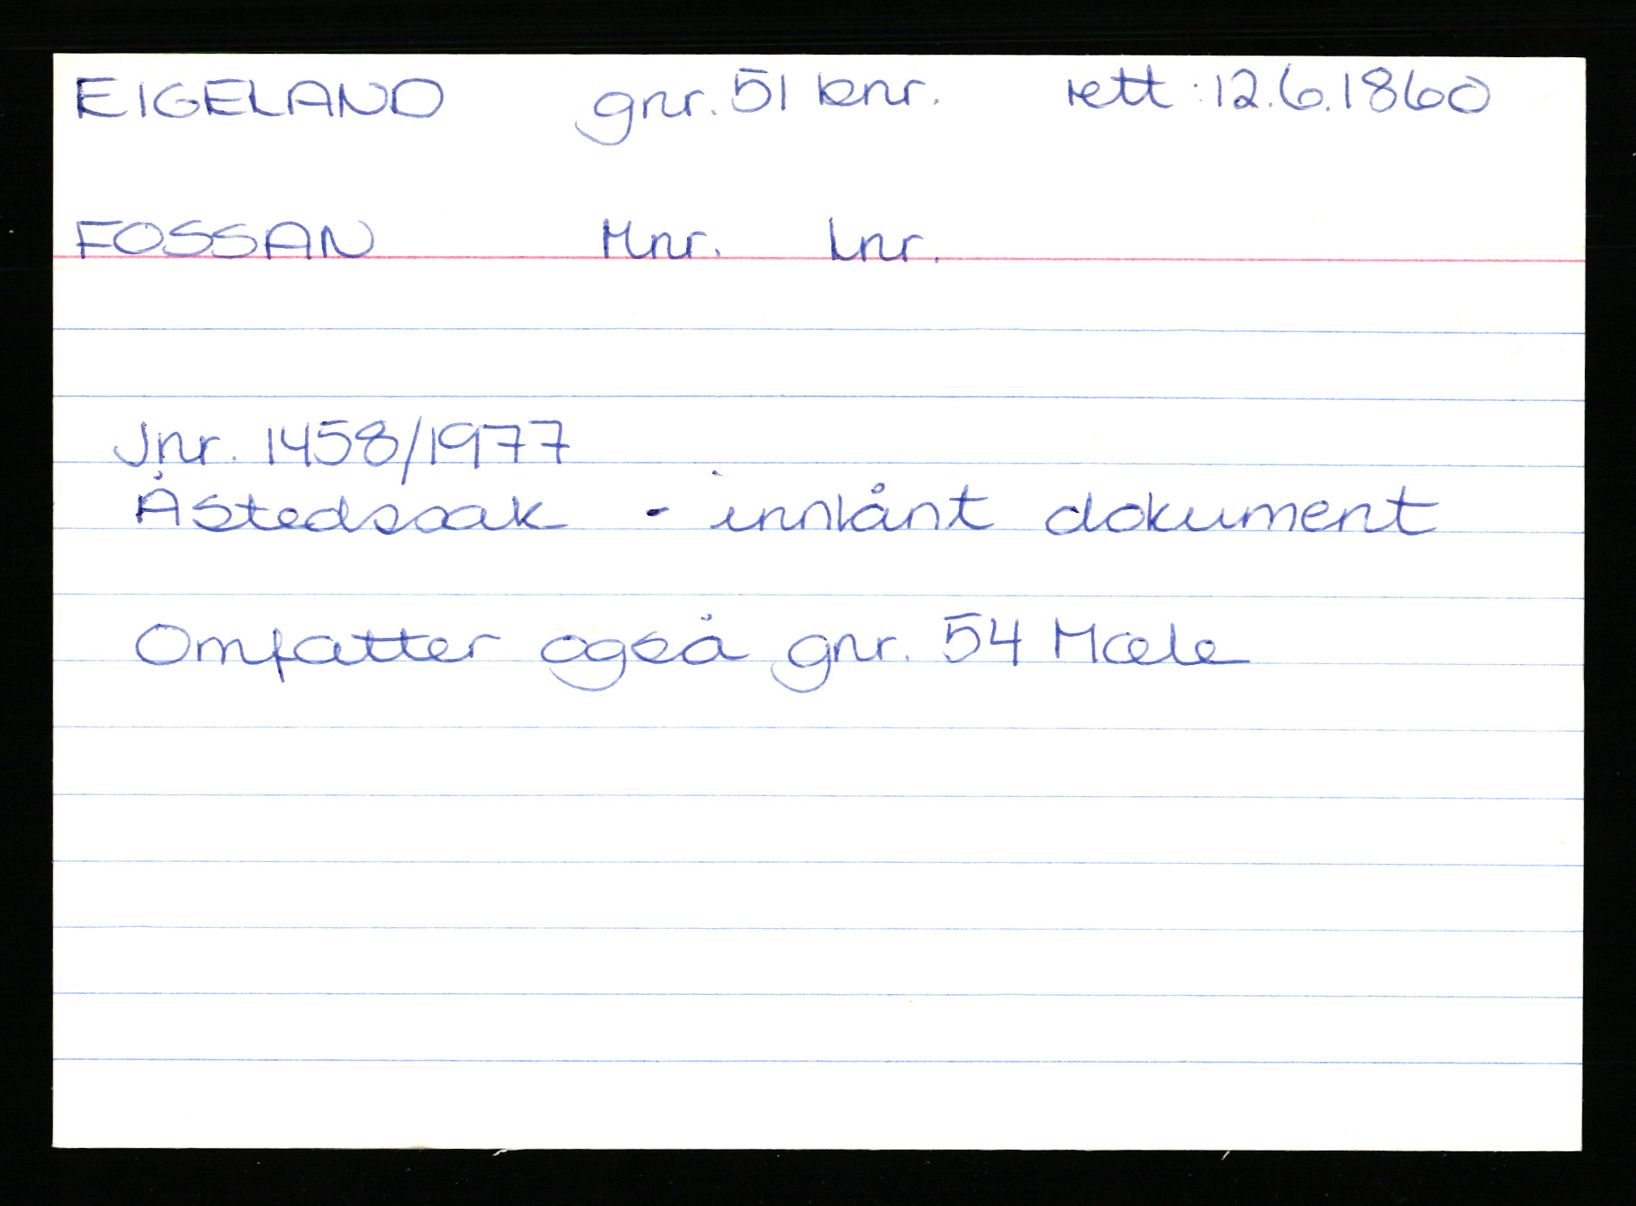 EIGELAND gnr. 51 bnr. rett: 12.6.1860
FOSSAN Mnr. Lnr.
Jnr. 1458/1977
Åstedssak - innlånt dokument
Omfatter også gnr. 54 Mæle